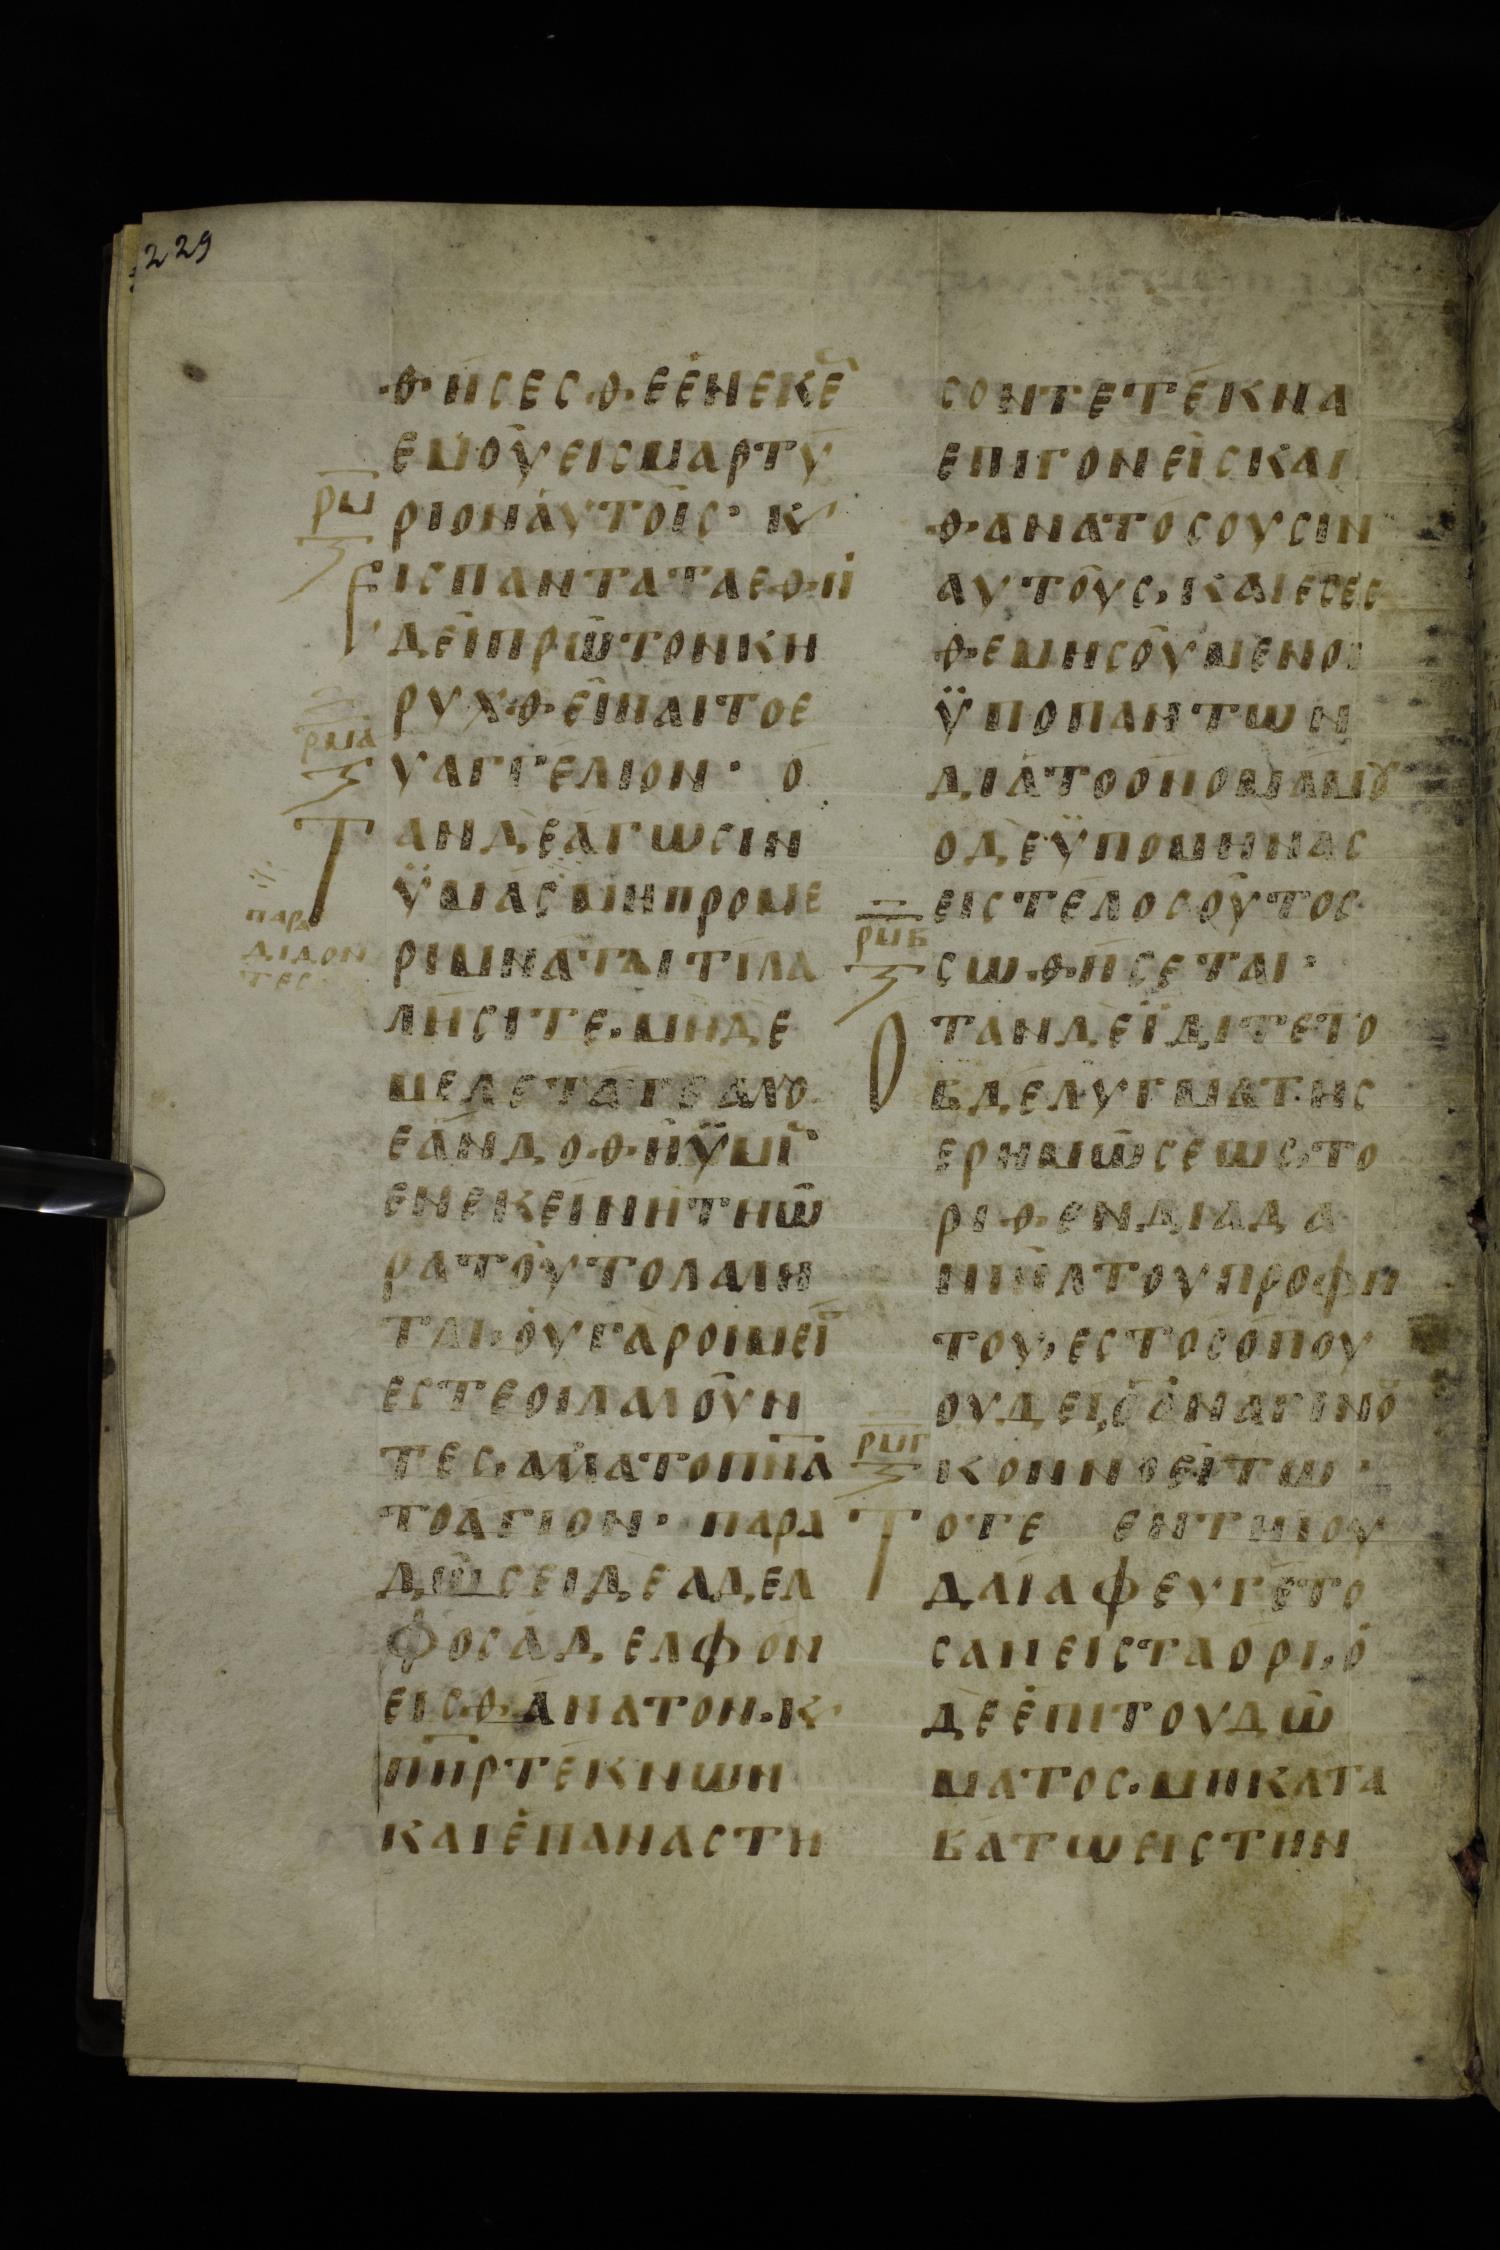 229
θηςεςθεενεκε
εμουειςμαρτυ
ριοναυτοις· κ
ρμ
ειςπανταταεθνη
δειπρωτονκη
ρυχθειναιτοε
ρμα
υαγγελιον· ο
Τανδεαγωσιν
ϋμαςμηπρομε
παρα
διδον
τες
ριμναταιτιλα
λησιτε·μηδε
μελεταταιαλλο
εανδοθηϋμι·
ενεκεινητηω
ρατουτολαλη
ται,ουγαροιμει
εστεοιλαλουν
τες,αλλατοπνα
τοαγιον· παρα
δωσειδεαδελ
φοςαδελφον
ειςθανατον·κ
πηρτεκνων
καιεπαναστη
σοντετεκνα
επιγονειςκαι
θανατοσουσιν
αυτους,καιεσες
θεμησουμενοι
ϋποπαντων
διατοονομαμου
οδεϋπομηνας
ειςτελοςουτος
ρμβ
σωθησεται·
Οτανδεϊδιτετο
βδελυγματης
ερημωσεως,το
ριθενδιαδα
νιηλτουπροφη
του,εστοςοπου
ουδει,οαναγινο
ρμγ
κοννοειτω·
Τοτε εντηιου
δαιαφευγετο
σανειςταορι,ο
δεεπιτουδω
ματος·μηκατα
βατωειςτην